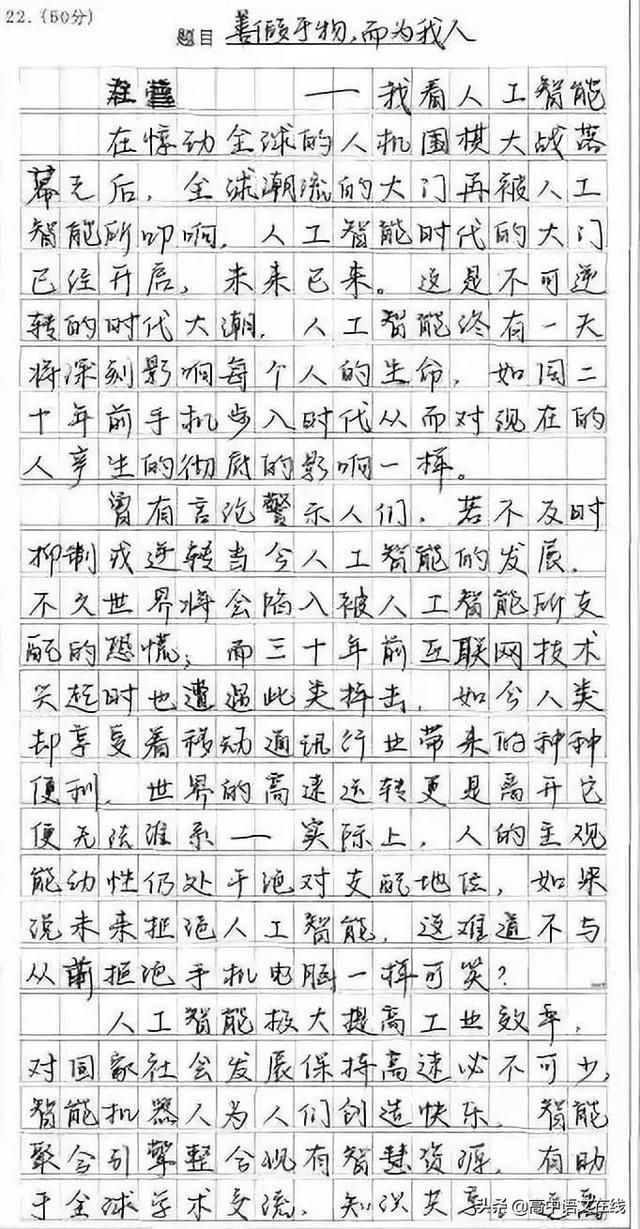 22.(50分)
题目 善假于物,而为我人
— 我看人工智能
在惊动全球的人机围棋大战落
幕之后,全球潮流的大门再被人工
智能所叩响,人工智能时代的大门
已经开启,未来已来。这是不可逆
转的时代大潮,人工智能终有一天
将深刻影响每个人的生命,如同二
十年前手机步入时代从而对现在的
人产生的彻底的影响一样。
曾有言论警示人们,若不及时
抑制或逆转当今人工智能的发展,
不久世界将会陷入被人工智能所支
配的恐慌;而三十年前互联网技术
兴起时也遭遇此类抨击,如今人类
却享受着移动通讯行业带来的种种
便利,世界的高速运转更是离开它
便无法维系—实际上,人的主观
能动性仍处于绝对支配地位,如果
说未来拒绝人工智能,这难道不与
从前拒绝手机电脑一样可笑?
人工智能极大提高工业效率,
对国家社会发展保持高速必不可少,
智能机器人为人们创造快乐,智能
聚合引擎整合现有智慧资源,有助
于全球学术交流,知识共享
头条@高中语文在线